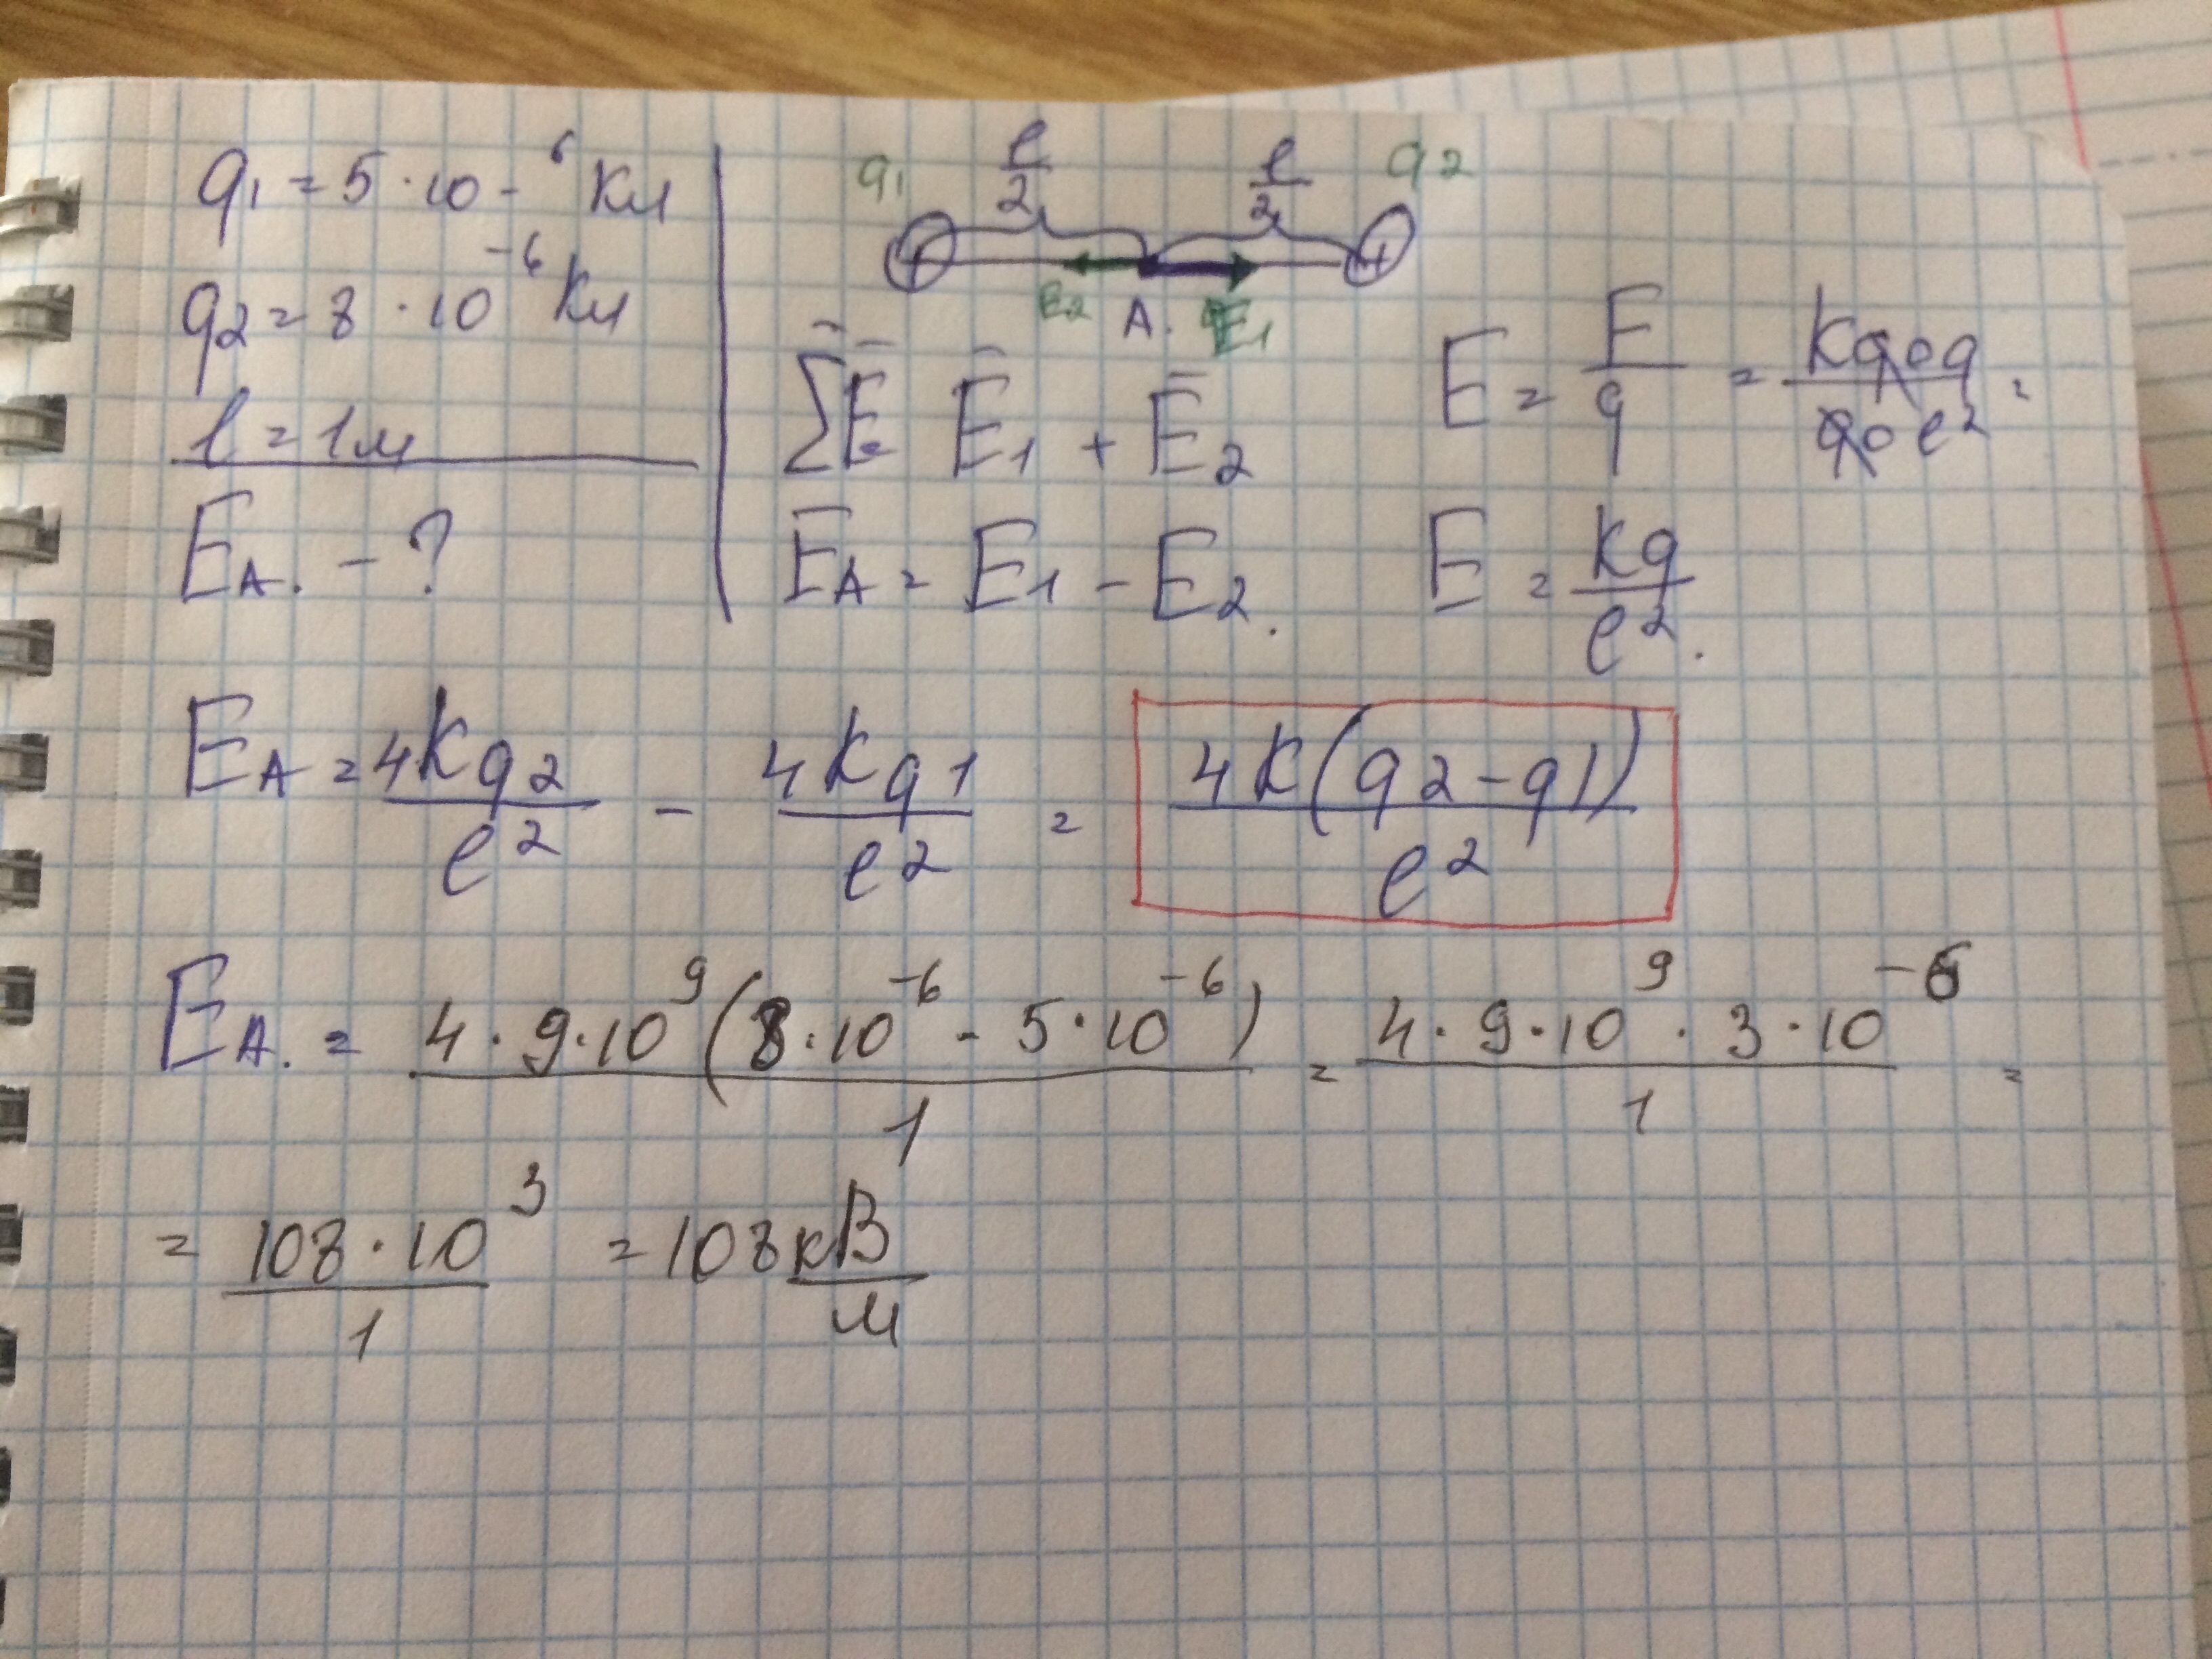 q1 = 5 · 10 - ⁶ Кл
q2 = 8 · 10⁻⁶ Кл
l = 1м
EA. - ?
q1 l/2 l/2 q2
E2 A. E1
∑E̅ E̅1 + E̅2
E̅A = E1 - E2.
E = F/q = kq0q/q0l² =
E = kq/l².
EA = 4kq2/l² - 4kq1/l² = 4k(q2-q1)/l²
EA. = 4 · 9 · 10⁹(8 · 10⁻⁶ - 5 · 10⁻⁶)/1 = 4 · 9 · 10⁹ · 3 · 10⁻⁶/1 =
= 108 · 10³/1 = 108 кВ/м